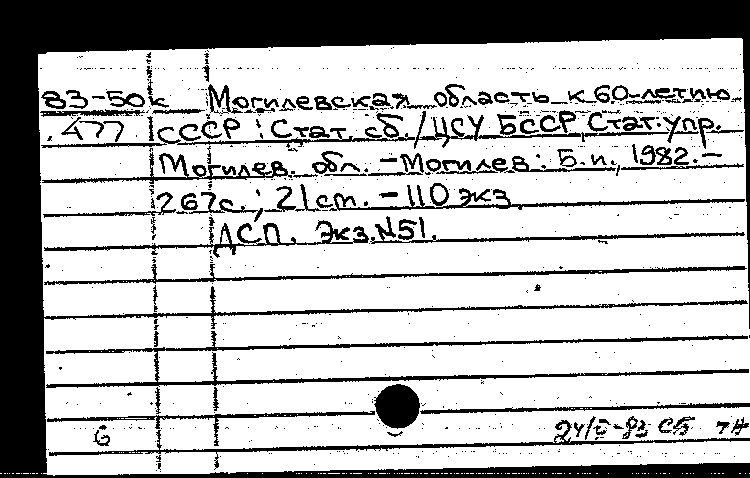 83-50к Могилевская область к 60-летию
477 СССР : Стат. сб. / ЦСУ БССР, Стат. упр.
Могилев. обл. - Могилев : Б.и., 1982. -
267с. ; 21 cm. - 110 экз.
ДСП. Экз.N51.
6
24/V-83 СБ